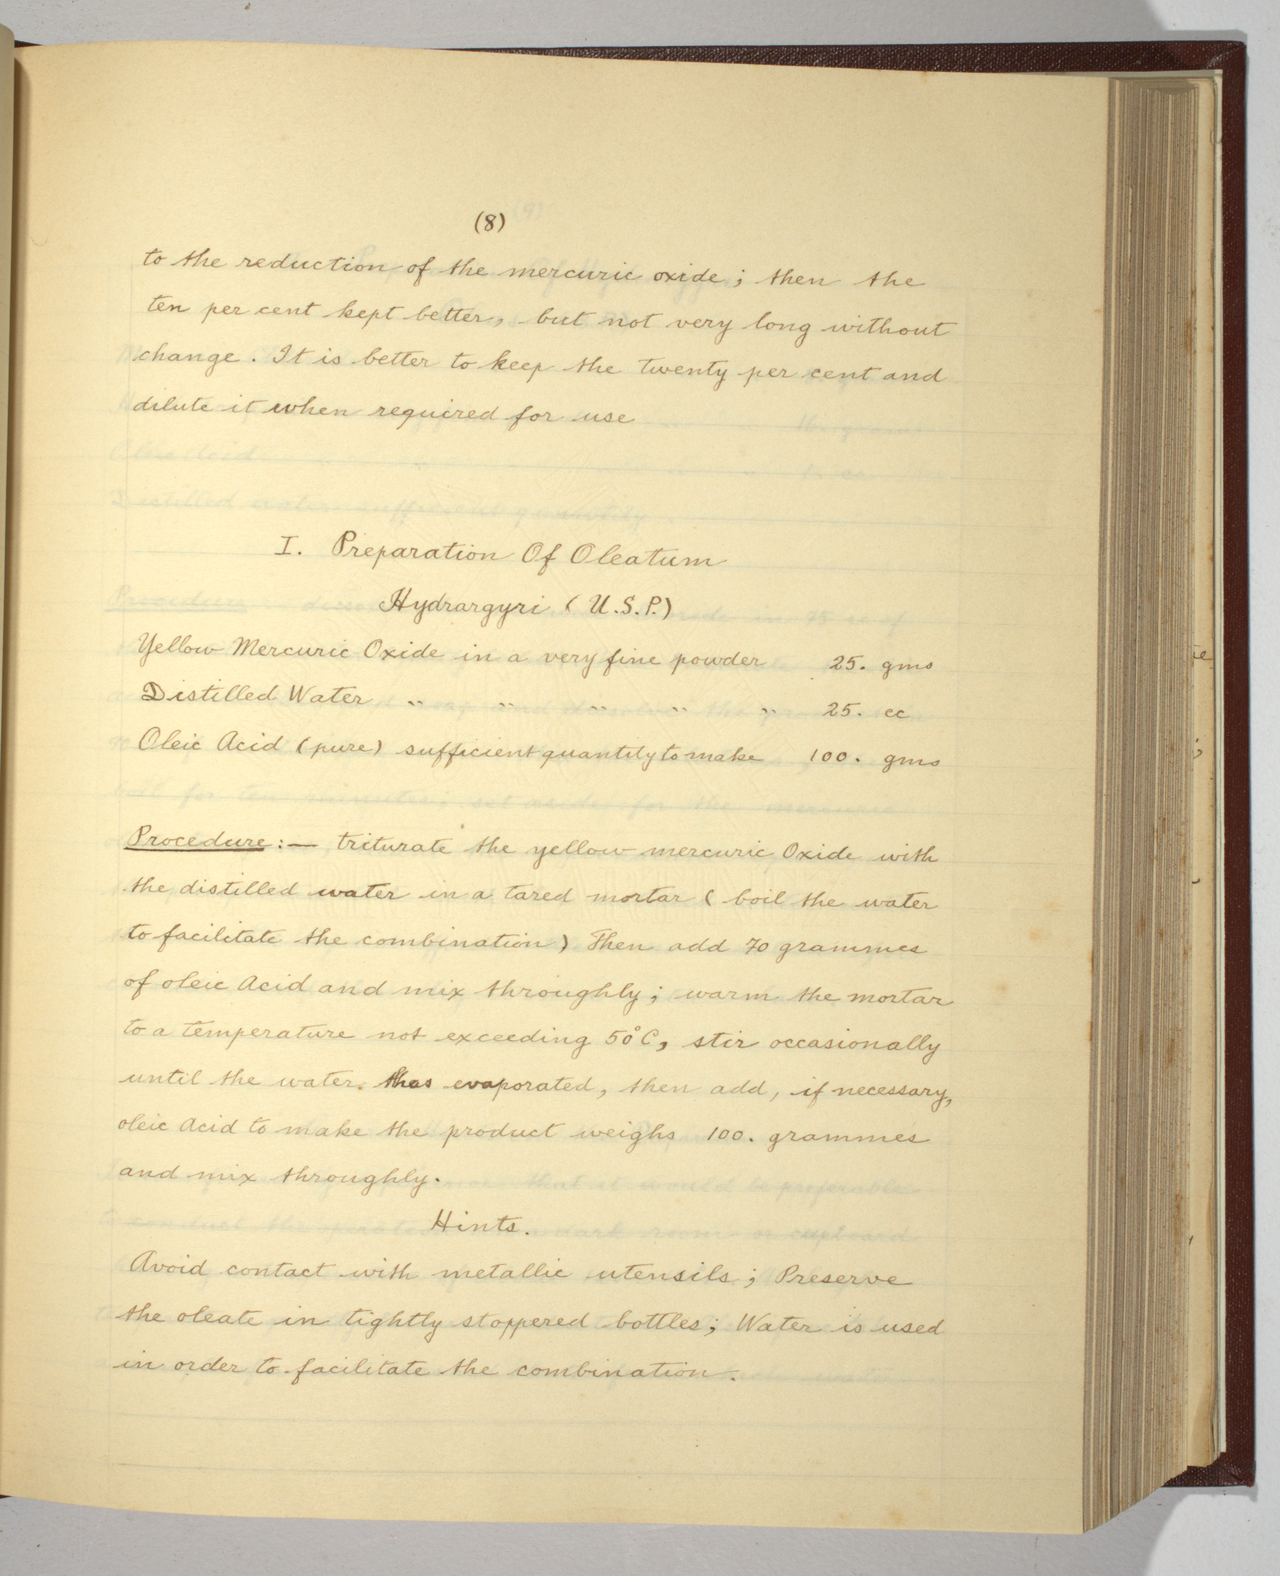 (8)
to the reduction of the mercuric oxide; then the
ten per cent kept better, but not very long without
change. It is better to keep the twenty per cent and
dilute it when required for use
I. Preparation Of Oleatum
Hydrargyri (U.S.P.)
Yellow Mercuric Oxide in a very fine powder 25. gms
Distilled Water " " " " " 25. cc
Oleic Acid (pure) sufficient quantity to make 100. gms
Procedure:— triturate the yellow mercuric Oxide with
the distilled water in a tared mortar ( boil the water
to facilitate the combination) Then add 70 grammes
of oleic Acid and mix throughly; warm the mortar
to a temperature not exceeding 50°C, stir occasionally
until the water. has evaporated, then add, if necessary,
oleic Acid to make the product weighs 100. grammes
and mix throughly.
Hints.
Avoid contact with metallic utensils; Preserve
the oleate in tightly stoppered bottles; Water is used
in order to facilitate the combination.